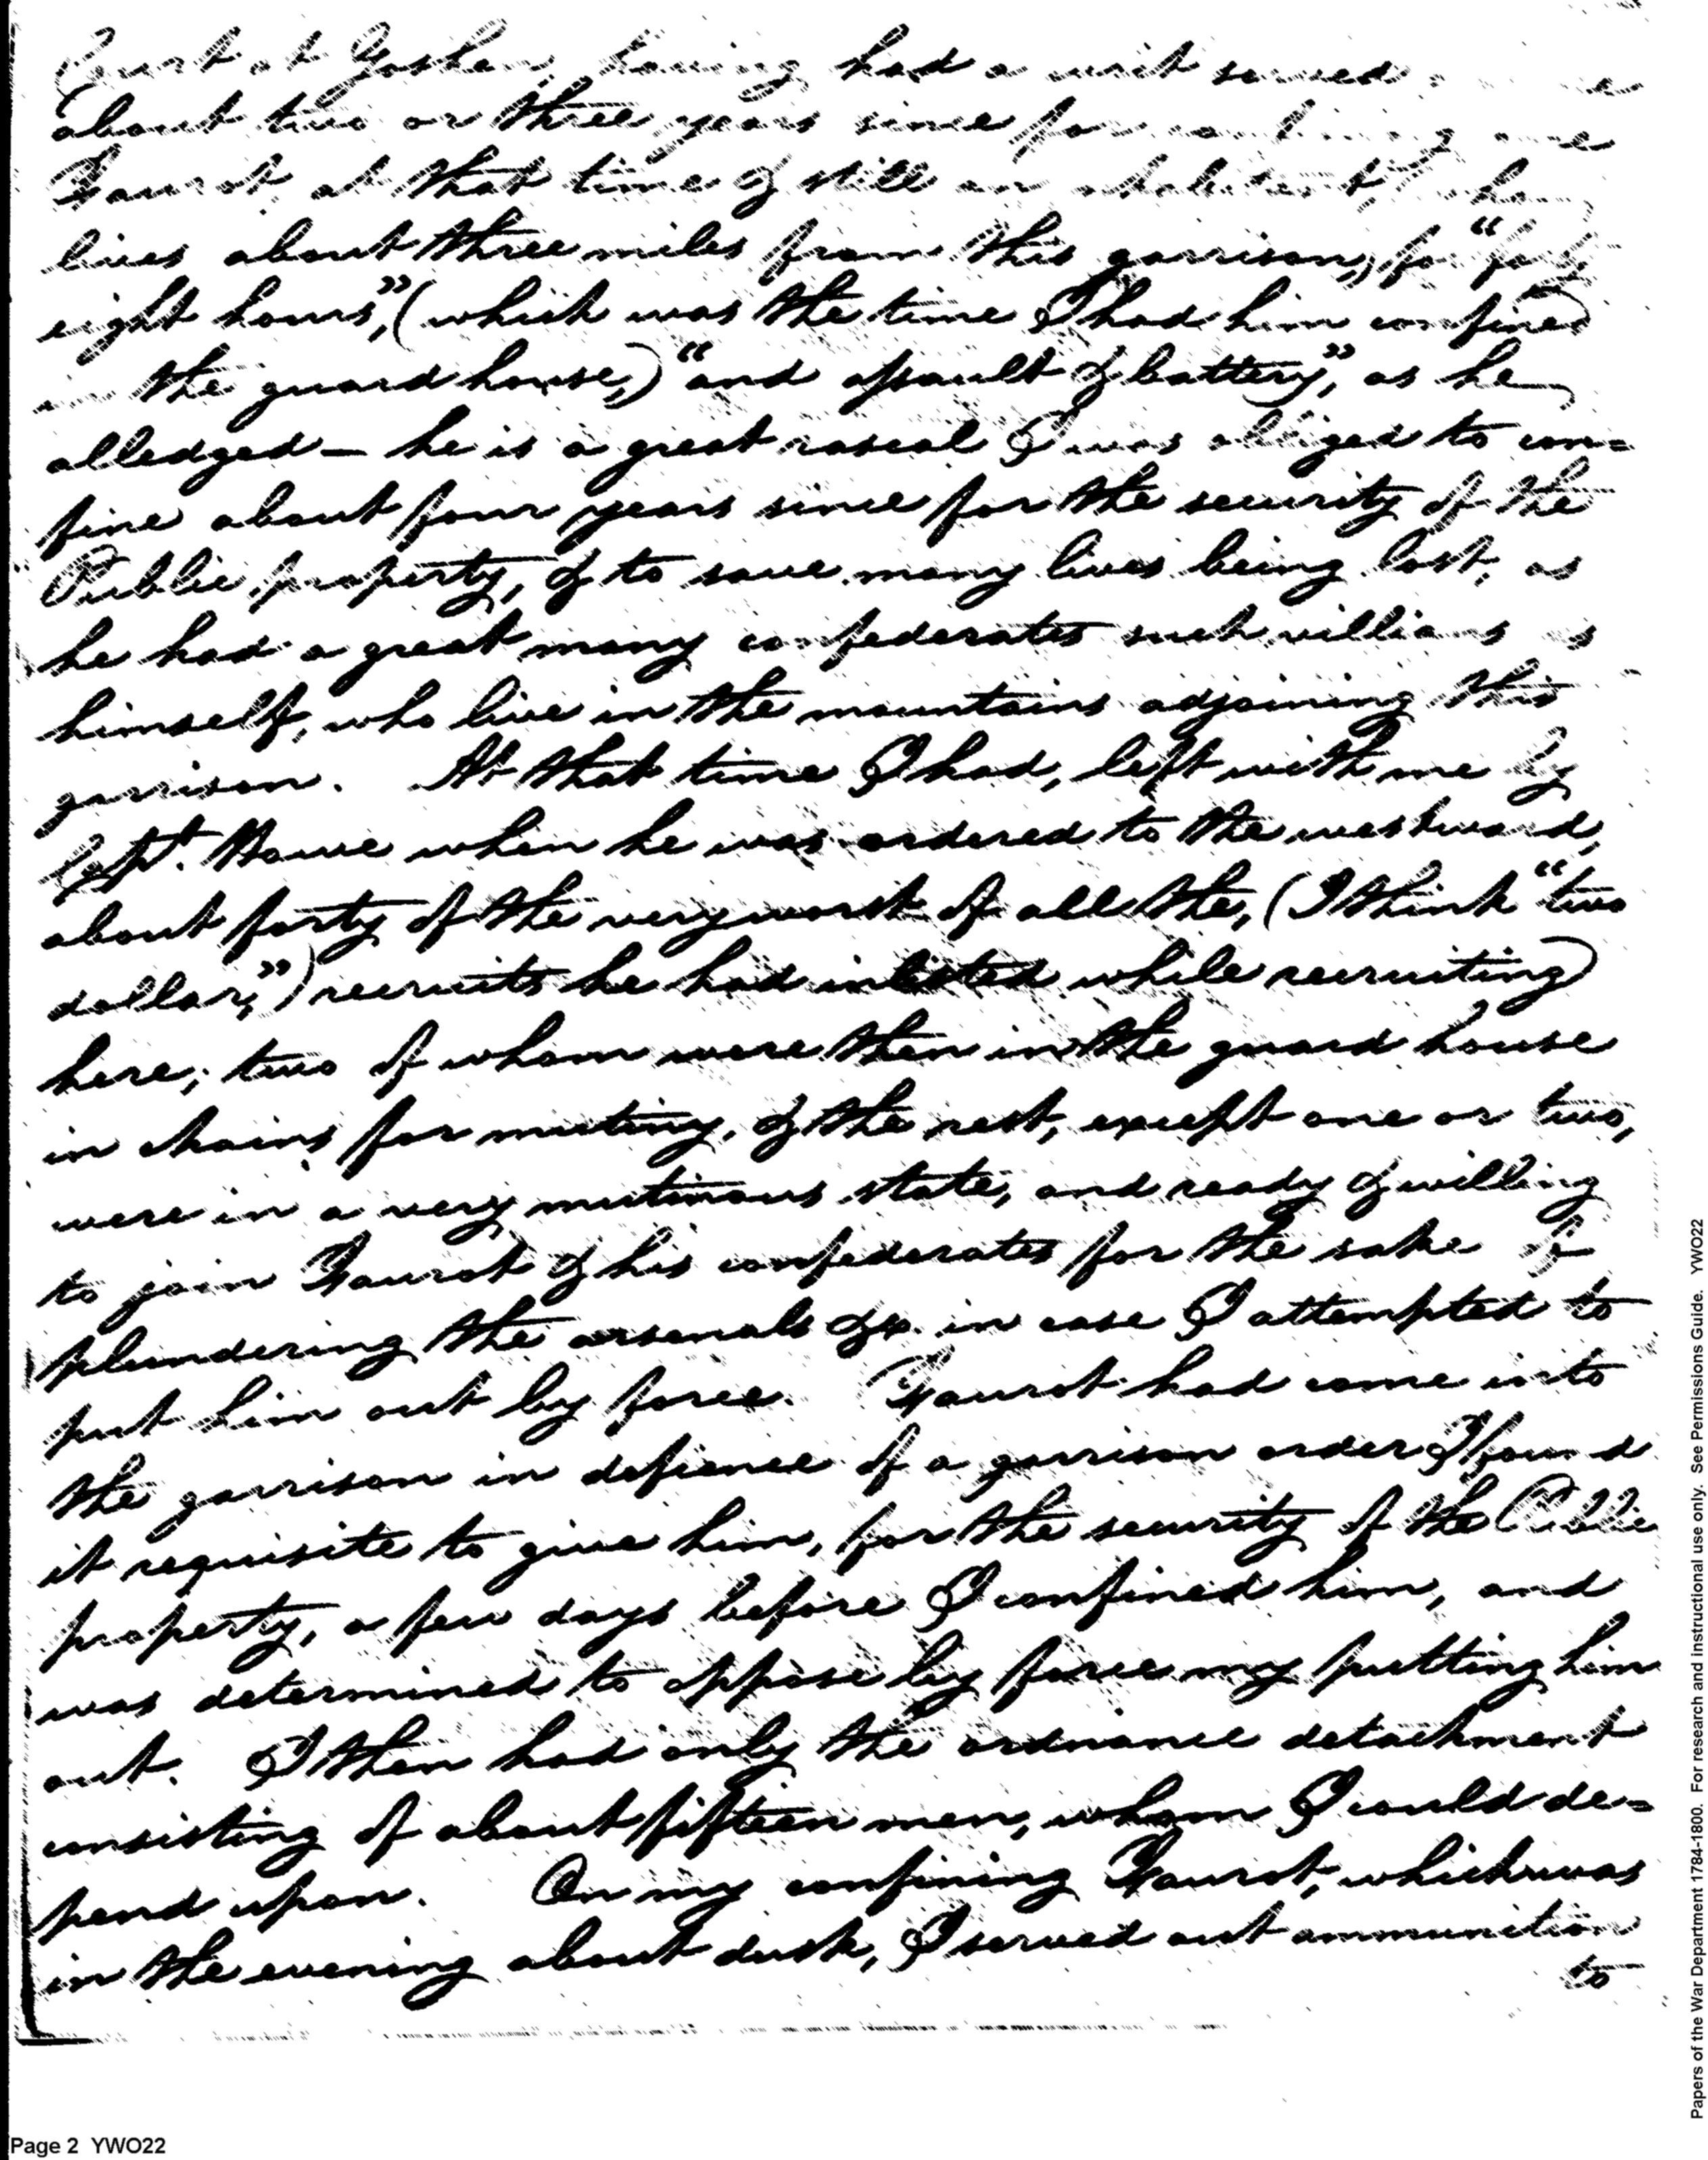 Court at Goshen, having had a writ served
about two or three years since for confining one
Faurot at that time & still an inhabitant, who
lives about three miles from this garrison, for "forty
eight hours", (which was the time I had him confined
in the guard house,) "and assault & battery", as he
alledged — he is a great rascal I was obliged to con=
fine about four years since for the security of the
Public property, & to save many lives being lost, as
he had a great many confederates such villians as
himself, who live in the mountains adjoining this
garrison. At that time I had, left with me by
Capt. Howe when he was ordered to the westward,
about forty of the very worst of all the, (I think "two
dollar,") recruits he had inlisted while recruiting
here; two of whom were then in the guard house
in chains for mutiny, & the rest, except one or two,
were in a very mutinous state, and ready & willing
to join Faurot & his confederates for the sake of
plundering the arsenals &c. in case I attempted to
put him out by force. Faurot had come into
the garrison in defience of a garrison order I found
it requisite to give him, for the security of the Public
property, a few days before I confined him, and
was determined to oppose by force my putting him
out. I then had only the ordnance detachment
consisting of about fifteen men, whom I could de=
pend upon. On my confining Faurot, which was
in the evening about dusk, I served out ammunition
to
Page 2 YWO22
Papers of the War Department 1784-1800. For research and instructional use only. See Permissions Guide. YWO22